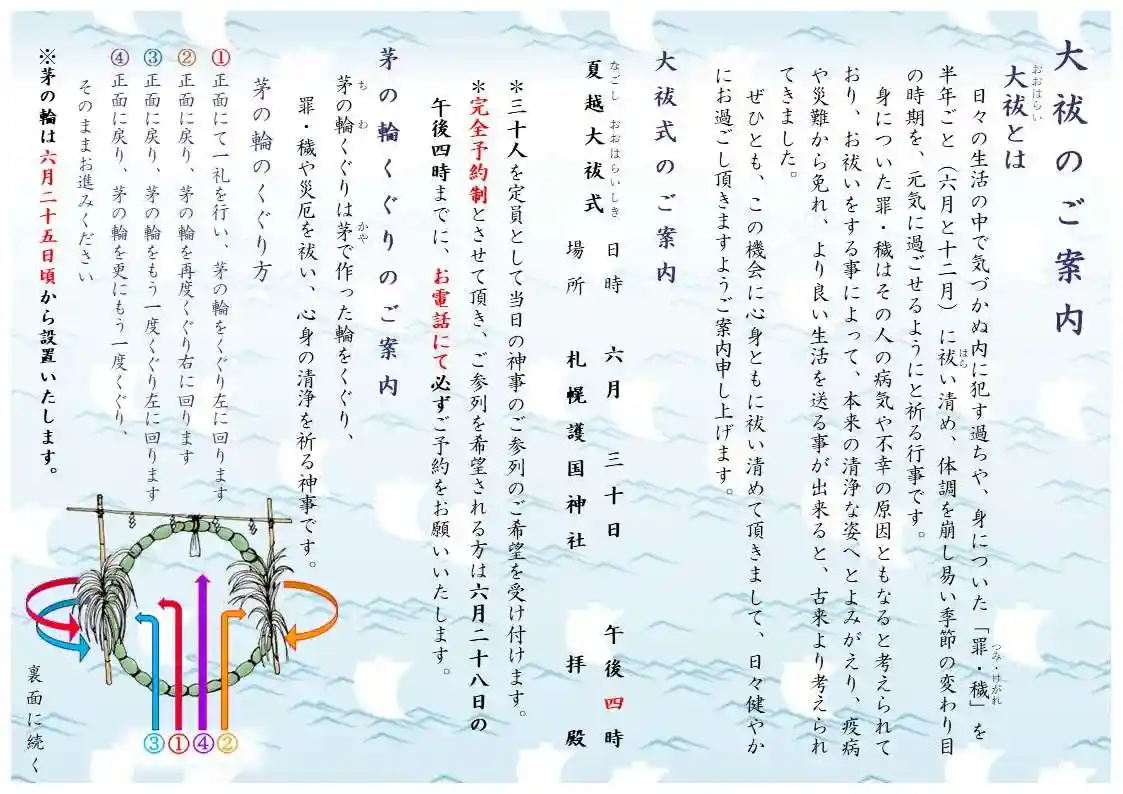 大祓のご案内
大祓とは
おおはらい
日々の生活の中で気づかぬ内に犯す過ちや、身についた「罪・穢」を
つみ・けがれ
半年ごと（六月と十二月）に祓い清め、体調を崩し易い季節の変わり目
はら
の時期を、元気に過ごせるようにと祈る行事です。
身についた罪・穢はその人の病気や不幸の原因ともなると考えられて
おり、お祓いをする事によって、本来の清浄な姿へとよみがえり、疫病
や災難から免れ、より良い生活を送る事が出来ると、古来より考えられ
てきました。
ぜひとも、この機会に心身ともに祓い清めて頂きまして、日々健やか
にお過ごし頂きますようご案内申し上げます。
大祓式のご案内
夏越大祓式
なごし おおはらいしき
日時 六月 三十日 午後四時
場所 札幌護国神社 拝殿
＊三十人を定員として当日の神事のご参列のご希望を受け付けます。
＊完全予約制とさせて頂き、ご参列を希望される方は六月二十八日の
午後四時までに、お電話にて必ずご予約をお願いいたします。
茅の輪くぐりのご案内
茅の輪くぐりは茅で作った輪をくぐり、
ち わ かや
罪・穢や災厄を祓い、心身の清浄を祈る神事です。
茅の輪のくぐり方
①正面にて一礼を行い、茅の輪をくぐり左に回ります
②正面に戻り、茅の輪を再度くぐり右に回ります
③正面に戻り、茅の輪をもう一度くぐり左に回ります
④正面に戻り、茅の輪を更にもう一度くぐり、
そのままお進みください
※茅の輪は六月二十五日頃から設置いたします。
③①④②
裏面に続く